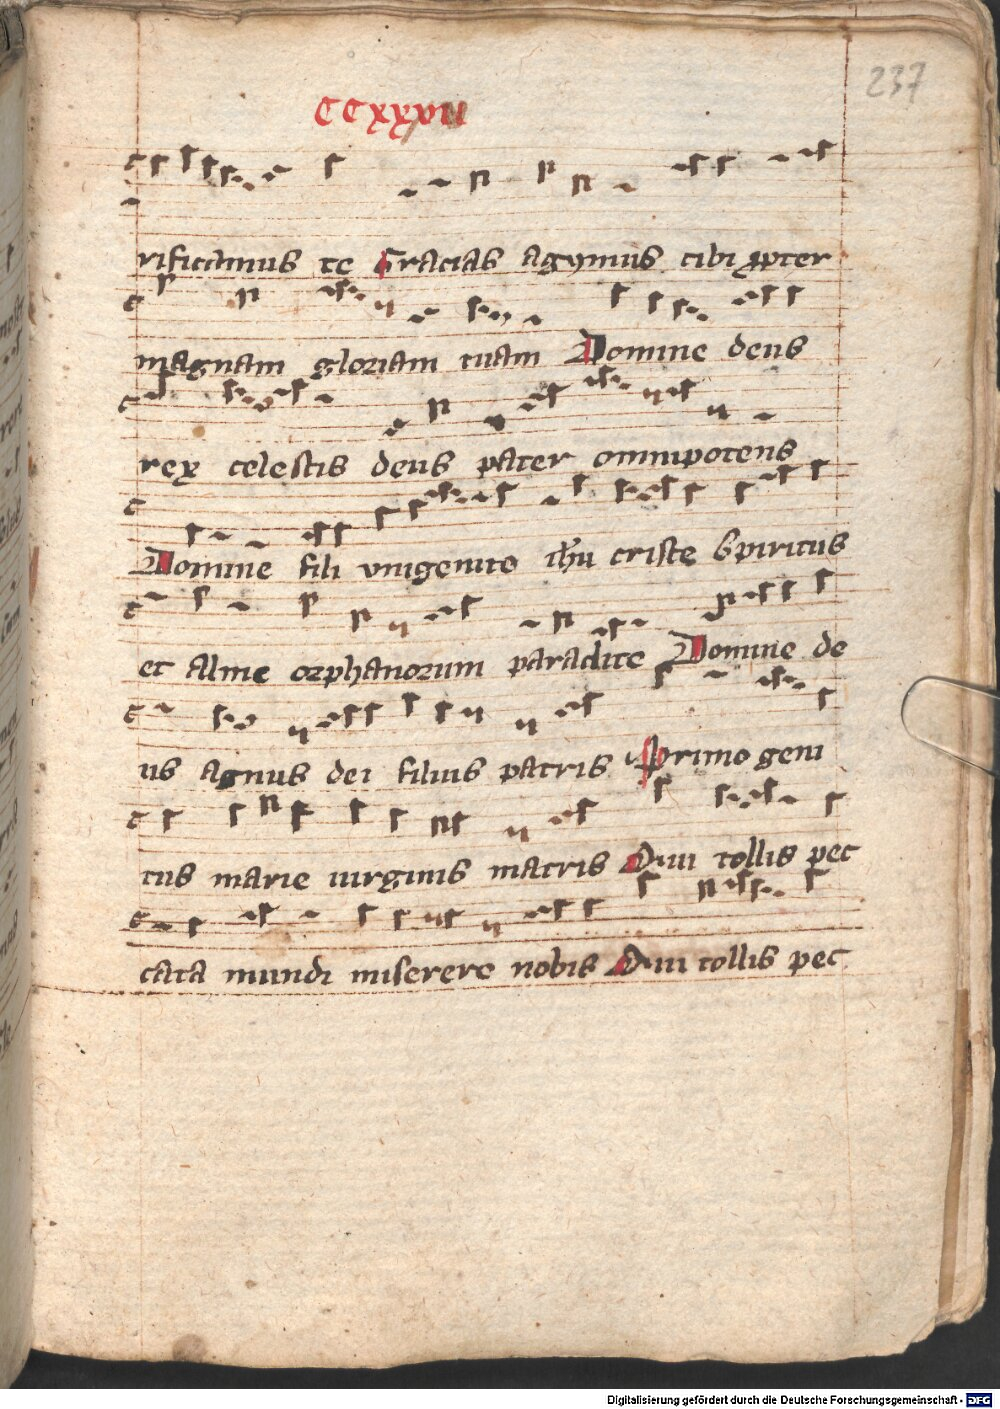 237
CCxxxvii
rificamus te Gracias agimus tibi ꝓpter
magnam gloriam tuam Domine deus
rex celestis deus pater omnipotens
Domine fili vnigenito ihu criste spiritus
et alme orphanorum paraclite Domine de
us agnus dei filius patris Primo geni
tus marie uirginis matris Qui tollis pec
cata mundi miserere nobis Qui tollis pec
Digitalisierung gefördert durch die Deutsche Forschungsgemeinschaft - DFG